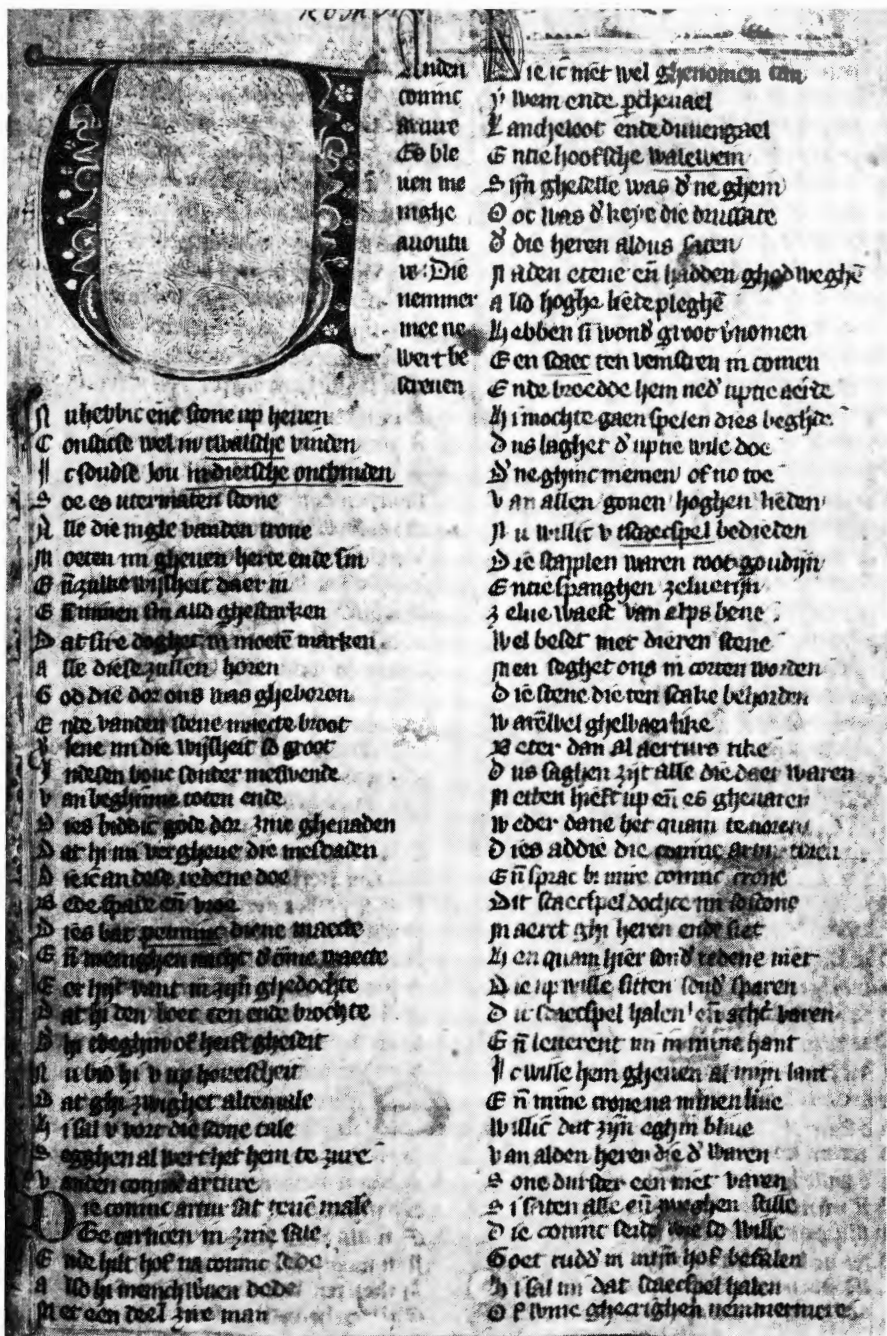 Anden
coninc
arture
Es ble
uen me
nighe
auontu
re: Die
nemmer
mee ne
wert be
screuen
Nu hebbic ene stone up heuen
Consticse wel int walsche vinden
Ic soudse jou in dietsche ontbinden
Soe es utermaten scone
Alle die ingle vanden trone
Moeten mi gheuen herte ende sin
Eñ zulke wijsheit daer in
Eñ minen sin also ghestarken
Dat sire doghet in moetē marken
Alle diese zullen horen
God die dor ons was gheboren
Ende vanden stene maecte broot
Vlene mi die wijsheit so groot
Indesen bouc sonder meswende
Van beghinne toten ende
Dies biddic gode dor zine ghenaden
Dat hi mi vergheue die mesdaden
Die ic an dese redene doe
Bede spade eñ vroe
Dies bat penninc diene maecte
Eñ menighen nacht d'ōme waecte
Eer hijt vant in zijn ghedochte
Dat hi den boec ten ende brochte
Hi tbeghin of heift gheseit
Nu bid hi v up houescheit
Dat ghi zwighet altemale
Hi sal v vort die scone tale
Segghen al wert het hem te zure
Vanden coninc arture
Die coninc artur sat teuē male
Te carlioen in zine sale
Ende hilt hof na conincs sede
Also hi menich weruen dede
Met een deel zire man
Die ic niet wel ghenomen can
ywein ende ptheuael
Lancheloot ende duuengael
Entie hoofsche walewein
Sijn gheselle was d' ne ghein
Ooc was d' keye die drussate
D' die heren aldus saten
Naden etene eñ hadden ghedweghē
Also hoghe liede pleghē
Hebben si wond' groot vnomen
Een scaec ten veinstren in comen
Ende breedde hem ned' uptie aerde
Hi mochte gaen spelen dies begh'de
Dus laghet d' uptie wile doe
D' ne ghinc niemen of no toe
Van allen gonen hoghen lieden
Nu willic v tscaecspel bedieden
Die stapplen waren root goudijn
Entie spanghen zeluerijn
Zelue waest van elps bene
Wel beset met dieren stene
Men seghet ons in corten worden
Die stene die ten scake behorden
Warē wel ghelwaerlike
Beter dan al aerturs rike
Dus saghen zijt alle die daer waren
Metten hieft up eñ es gheuaren
Weder dane het quam te voren
Dies
die coninc
Eñ sprac bi mire coninc crone
Dit scaecspel dochte mi so scone
Maerct ghi heren ende siet
Hen quam hier sond' redene niet
Die up wille sitten sond' sparen
Dit scaecspel halen eñ acht' varen
Eñ leuerent mi in mine hant
Ic wille hem gheuen al mijn lant
Eñ mine crone na minen liue
Willic dat zijn eghin bliue
Van alden heren die d' waren
Sone durster een niet varen
Si saten alle eñ zweghen stille
Die coninc seide wie so wille
Goet rudd' in mijn hof bestalen
Hi sal mi dat scaecspel halen
Of wine ghecrighen nemmermere